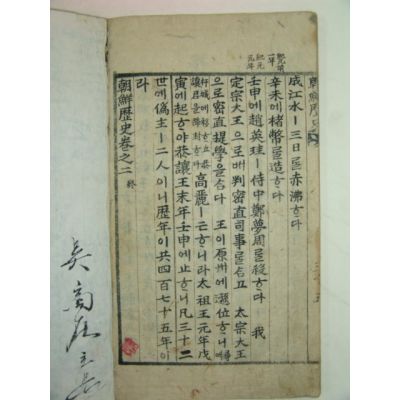 成江水ㅣ三日을赤沸ᄒᆞ다
辛未에楮幣를造ᄒᆞ다
壬申에趙英珪ㅣ侍中鄭夢周를殺ᄒᆞ다 我
定宗大王으로判密直司事를삼고 太宗大王
으로密直提學을삼다 王이原州에遜位ᄒᆞ니
高麗ㅣ亡ᄒᆞ니라太祖王元年戊
寅에起ᄒᆞ야恭讓王末年壬申에止ᄒᆞ니凡三十二
世에僞主ㅣ二人이니歷年이共四百七十五年이
라
朝鮮歷史卷之二 終